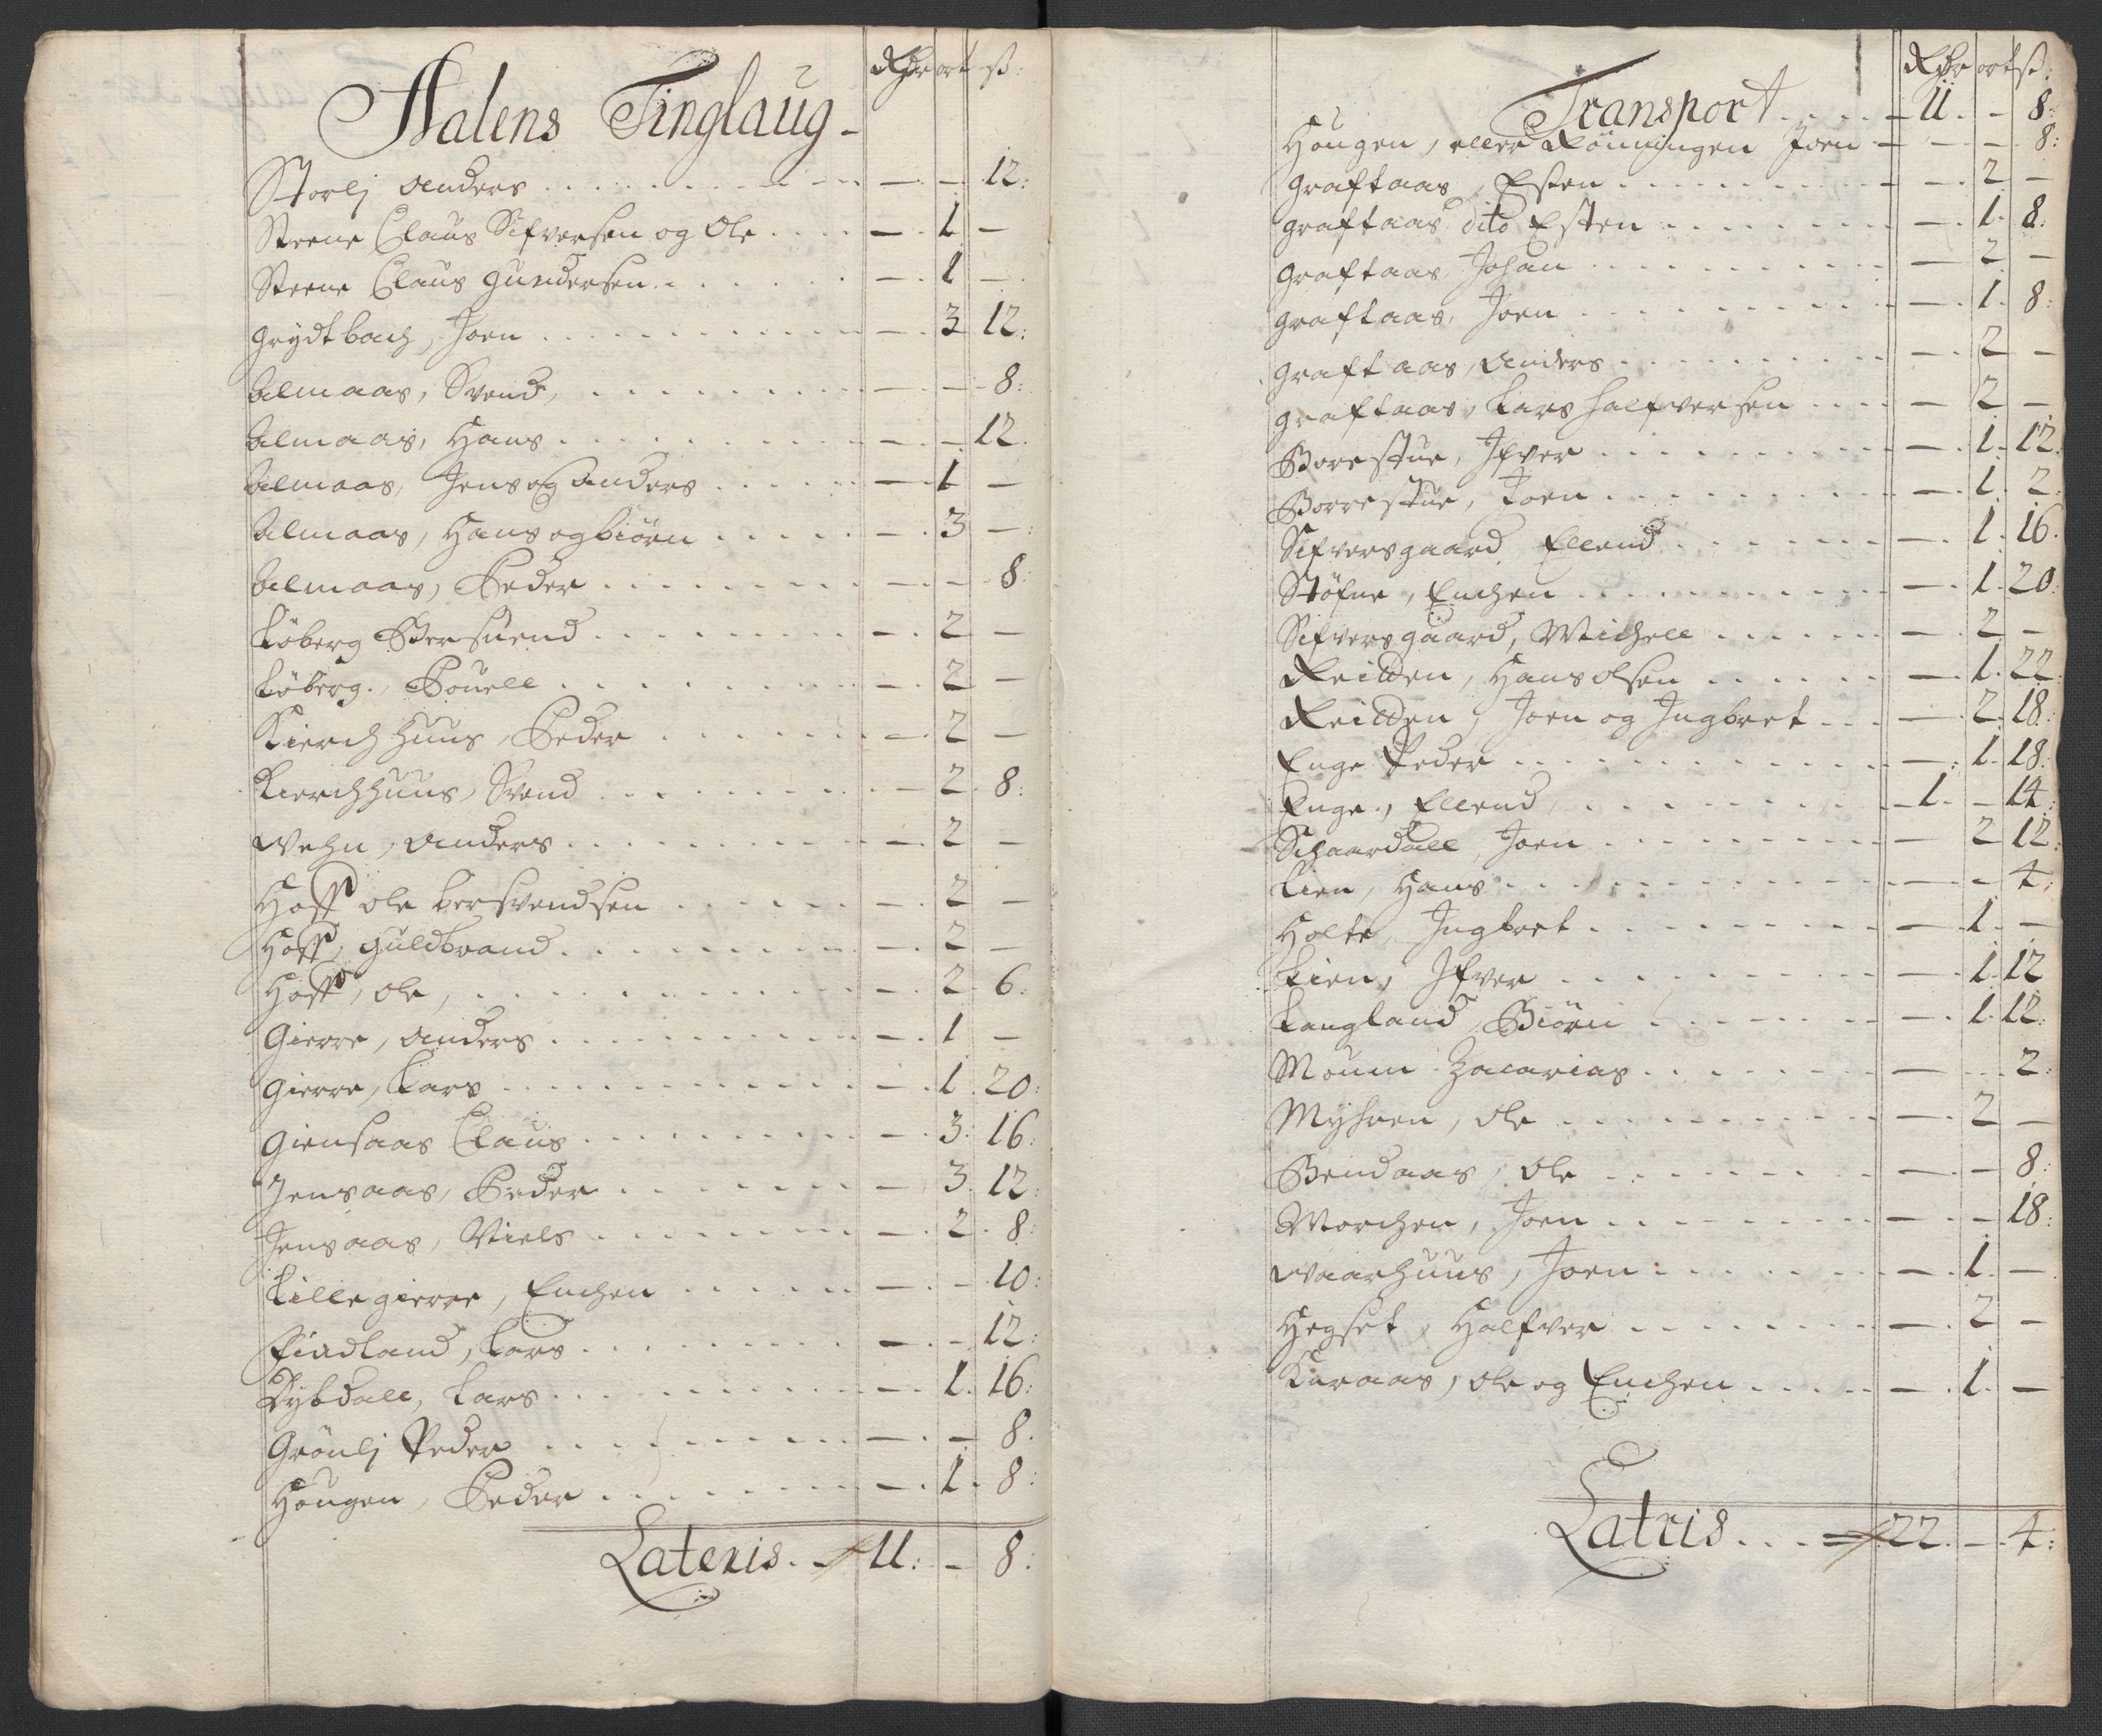 Rdr ort ß:
Aalens Tinglaug -
Storlj Anders . . . — . — . 12:
Steene Claus Sifversen og Ole . . . — . 1 . —
Steene Claus Gundersen . . . — . 1 . —
Grydtbach, Joen . . . — . 3 . 12:
Almaas, Svend, . . . — . — . 8:
Almaas, Hans . . . — . — . 12.
Almaas, Jens og Anders . . . — . 1 . —
Almaas, Hans og biörn . . . — . 3 . —
Almaas, Peder . . . — . — . 8:
Löberg Bersuend . . . — . 2 . —
Löberg., Pouell . . . — . 2 . —
Kierch Huus, Peder . . . — . 2 . —
Kierchhuus, Svend . . . — . 2 . 8:
Wehn, Anders . . . — . 2 . —
Hoff Ole bersvendsen . . . — . 2 . —
Hoff, Guldbrand . . . — . 2 . —
Hoff, Ole, . . . — . 2 . 6:
Gierre, Anders . . . — . 1 . —
Gierre, Lars . . . — . 1 . 20:
Giensaas Claus . . . — . 3 . 16:
Jensaas, Peder . . . — . 3 . 12:
Jensaas, Niels . . . — . 2 . 8:
Lillegierre, Enchen . . . — . — . 10:
Finland, Lars . . . — . — . 12:
Dybdall, Lars . . . — . 1 . 16:
Grönlj Peder . . . — . — . 8.
Hougen, Peder . . . — . 1 . 8:
Lateris . . 11: — 8:
Rdr ort ß:
Transport . . . 11 . — 8:
Hougen, eller Rönningen Joen — . — . 8:
Graftaas, Esten . . . — . 2 . —
Graftaas dito Esten . . . — . 1 . 8:
Graftaas Johan . . . — . 2 . —
Graftaas, Joen . . . — . 1 . 8:
Graftaas, Anders . . . — . 2 . —
Graftaas, Lars Halfversen . . . — . 2 . —
Borestue, Ifver . . . — . 1 . 12
Borrestue, Joen . . . — . 1 . 2
Sifversgaard Ellend . . . — . 1 . 16.
Stöfne, Enchen . . . — . 1 . 20
Sifversgaard, Michell . . . — . 2 . —
Reitten, Hans Olsen . . . — . 1 . 22
Reitten, Joen og Ingbret . . . — . 2 . 18:
Enge Peder . . . — . 1 . 18:
Enge, Ellend . . . 1 . — . 14:
Schaardall, Joen . . . — . 2 . 12
Lien, Hans . . . — . — . 4:
Holte, Ingbret . . . — . 1 . —
Lien, Ifver . . . — . 1 . 12
Langland, Biörn . . . — . 1 . 12:
Moum Zacarias . . . — . . . 2:
Myhren, Ole . . . — . 2 . —
Bendaas, Ole . . . — . — . 8:
Morchen, Joen . . . — . — . 18:
Waarhuus, Joen . . . — . 1 . —
Hegset, Halfver . . . — . 2 . —
Kuraas, Ole og Enchen . . . — . 1 . —
Latris . . . 22 . — . 4: